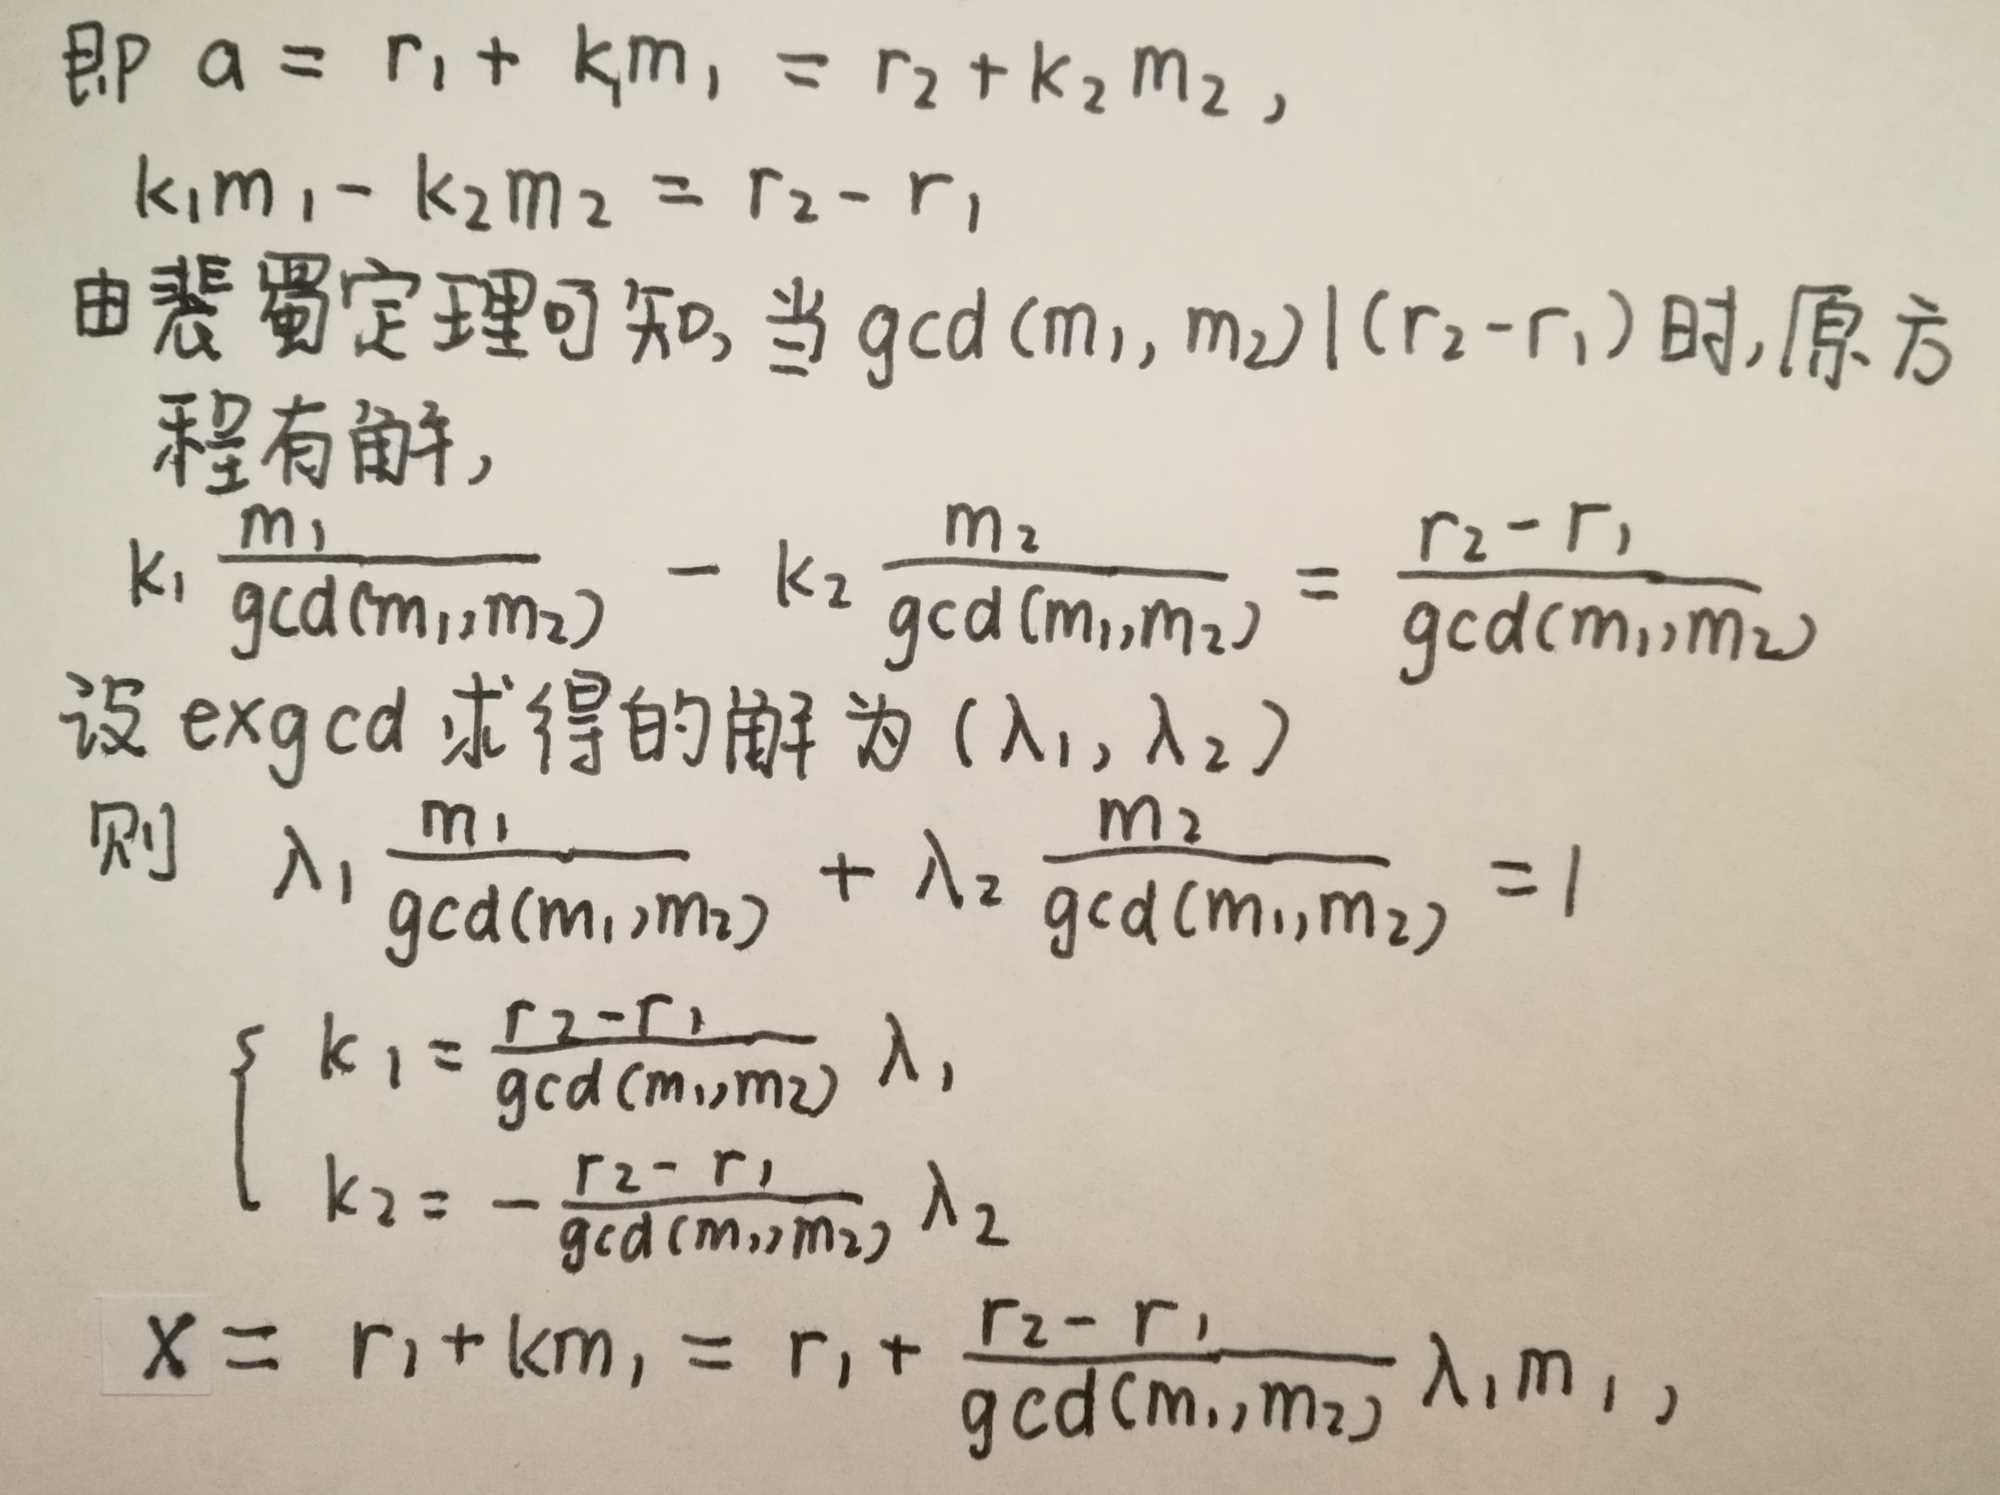 即 a = r₁ + k₁m₁ = r₂ + k₂m₂,
k₁m₁ - k₂m₂ = r₂ - r₁
由裴蜀定理可知,当gcd(m₁, m₂)|(r₂-r₁)时,原方
程有解,
k₁ m₁/gcd(m₁,m₂) - k₂ m₂/gcd(m₁,m₂) = (r₂-r₁)/gcd(m₁,m₂)
设exgcd求得的解为(λ₁, λ₂)
则 λ₁ m₁/gcd(m₁,m₂) + λ₂ m₂/gcd(m₁,m₂) = 1
{ k₁ = (r₂-r₁)/gcd(m₁,m₂) λ₁
k₂ = -(r₂-r₁)/gcd(m₁,m₂) λ₂
x = r₁ + km₁ = r₁ + (r₂-r₁)/gcd(m₁,m₂) λ₁m₁,